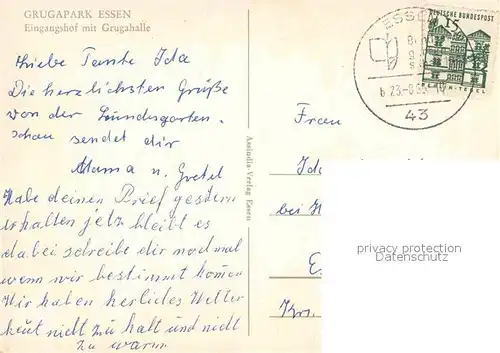 GRUGAPARK ESSEN
Eingangshof mit Grugahalle
Liebe Tante Ida
Die herzlichsten Grüße
von der Bundesgarten-
schau sendet dir
Mama u. Gretel
Habe deinen Brief gestern
erhalten jetz bleibt es
dabei schreibe dir nochmal
wenn wir bestimmt komen
Wir haben herliches Wetter
heut nicht zu kalt und nicht
zu warm
Assindia-Verlag Essen
ESSEN
23.-8.65
43
DEUTSCHE BUNDESPOST
15
TEGEL
Frau
Ida
bei
E
Krs.
privacy protection
Datenschutz